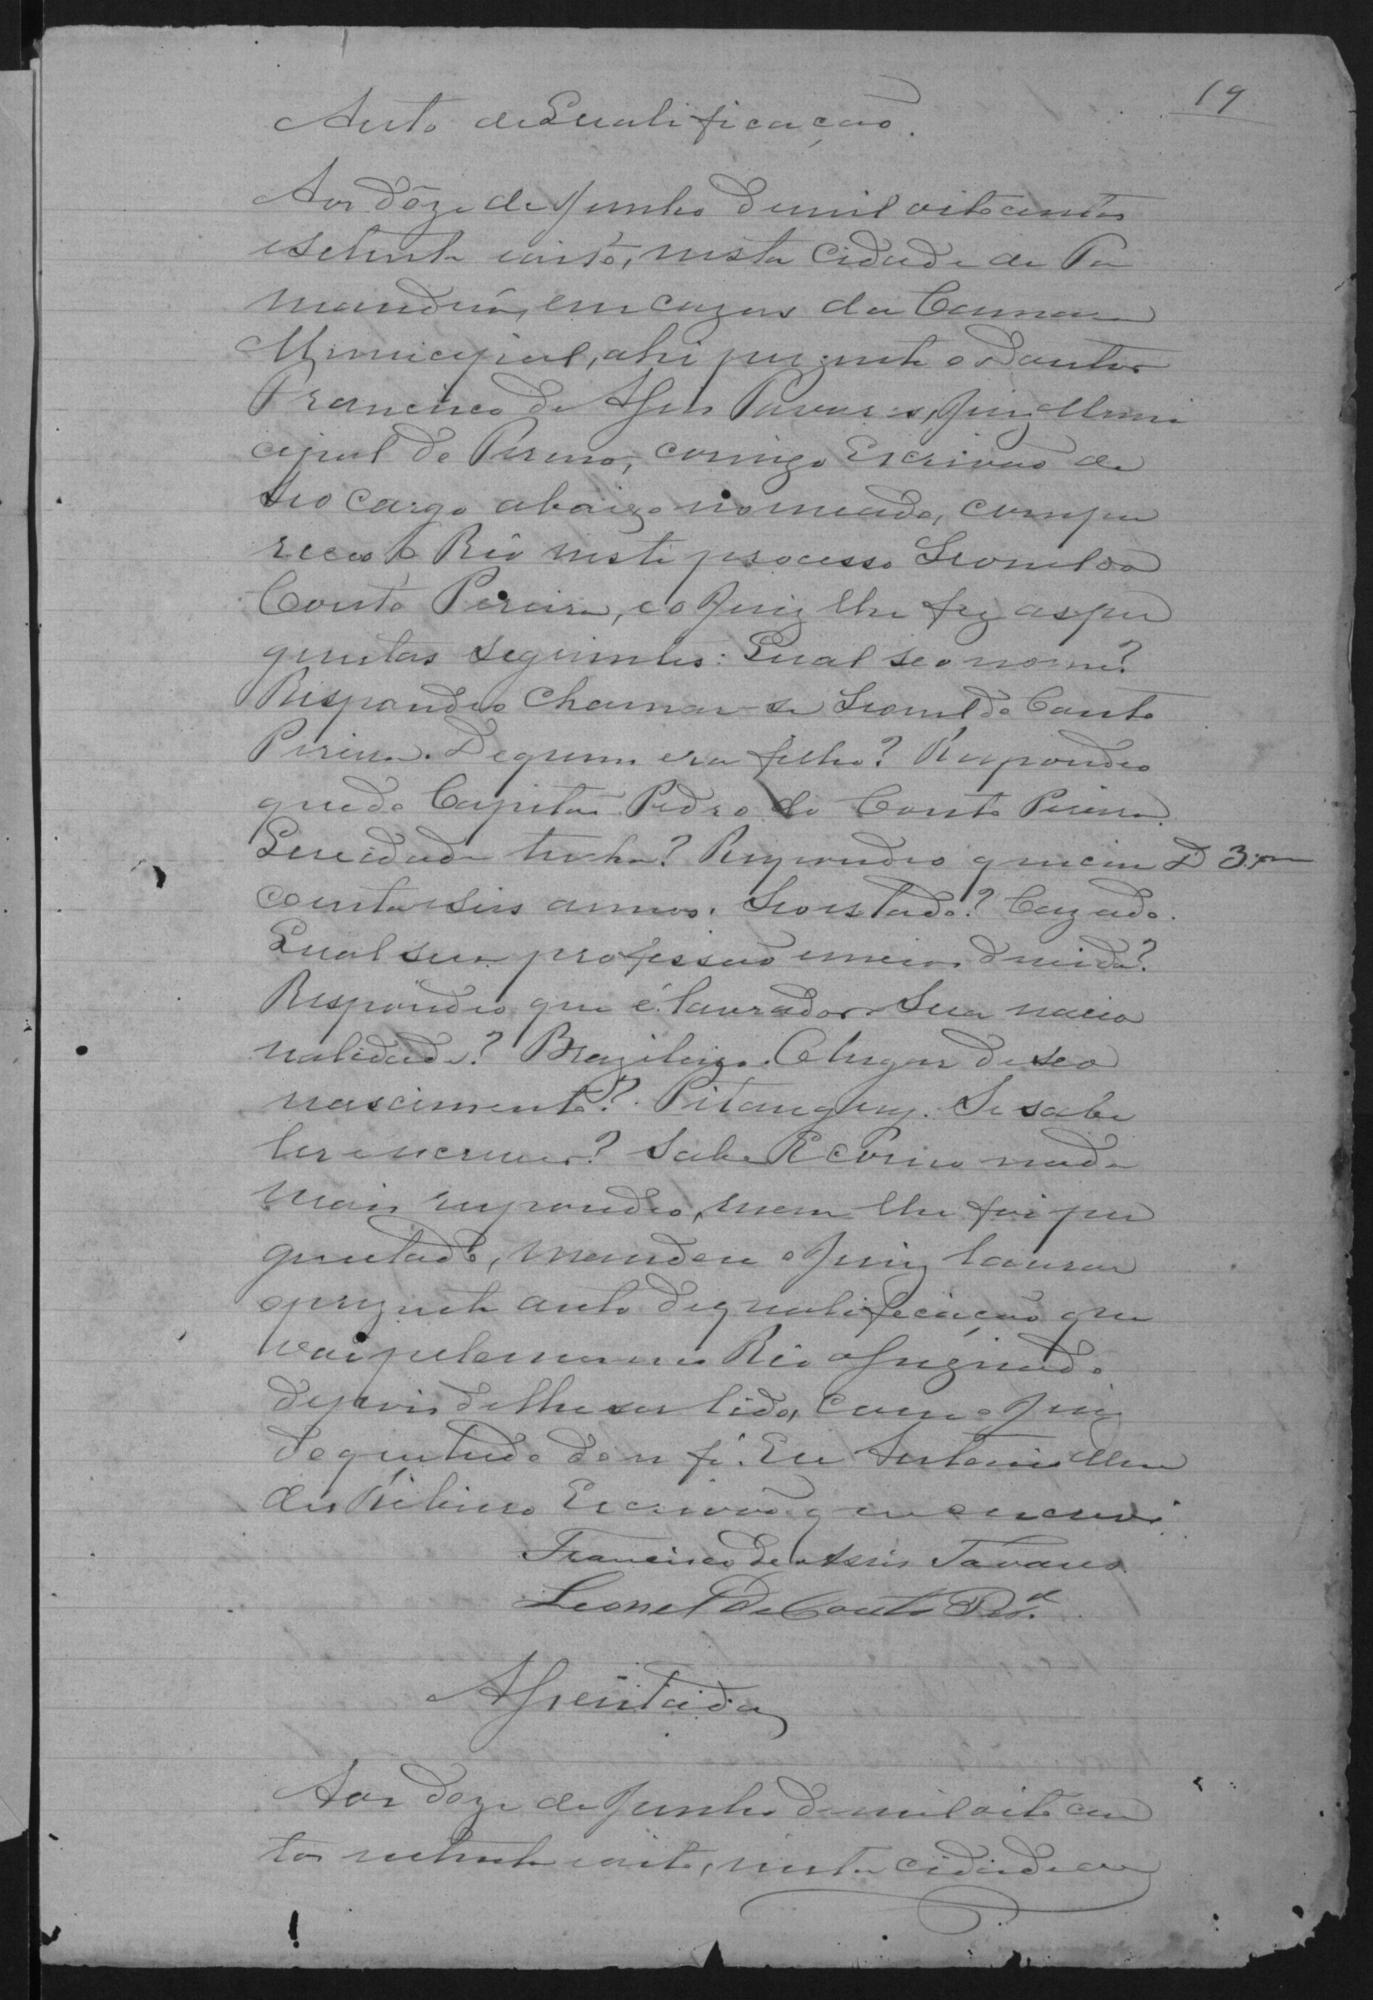 19
Auto de Qualificação.
Aos dôze de Junho de mil oitocentos
e setenta e oito, nesta Cidade do Pa
mandua, em cazas da Camara
Municipal, ahi prezente o Doutor
Francisco de Assis Tavares, Juiz Muni
cipal do Termo, comigo Escrivão de
seo cargo abaixo nomeado, compa
receo o Réo neste processo Leonel do
Couto Pereira, e o Juiz lhe fez as per
guntas seguintes: Qual seo nome?
Respondeo chamar-se Leonel do Couto
Pereira. De quem era filho? Respondeo
que do Capitão Pedro do Couto Pereira.
Que idade tinha? Respondeo que cin
coenta e seis annos. Seo estado? Cazado.
Qual sua profissão e meios de vida?
Respondeo que é lavrador. Sua nacio
nalidade? Brazileiro. O lugar de seo
nascimento? Pitanguy. Se sabe
ler e escrever? Sabe. E como nada
mais respondeo, nem lhe foi per
guntado, mandou o Juiz lavrar
o prezente auto de qualificação que
vai pelo mesmo Réo assignado
depois de lhe ser lido, com o Juiz
do que tudo dou fé. Eu Antonio Men
des Ribeiro Escrivão que escrevi
Francisco de Assis Tavares
Leonel do Couto Per.ª
Assentada
Aos doze de Junho de mil oito cen
tos setenta e oito, nesta cidade em